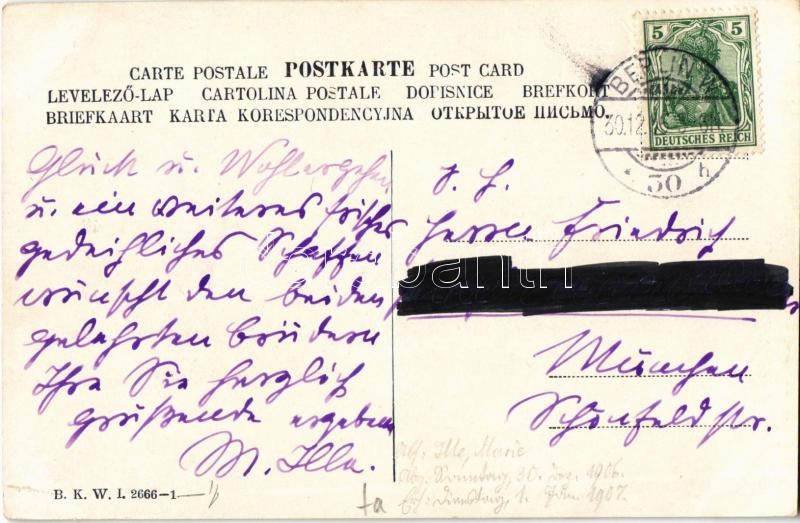 CARTE POSTALE POSTKARTE POST CARD
LEVELEZŐ-LAP CARTOLINA POSTALE DOPISNICE BREFKORT
BRIEFKAART KARTA KORESPONDENCYJNA ОТКРЫТОЕ ПИСЬМО.
5 5
DEUTSCHES REICH
BERLIN W.
30.12.
30 h
Glück u. Wohlergehen
u. ein weiteres frisches
gedeihliches Schaffen
wünscht den beiden
gelehrten Brüdern
Ihre Sie herzlich
grüßende ergebene
M. Ille.
S. H.
Herrn Friedrich
München
Schönfeldstr.
Abs: Ille, Marie
Abg: Sonntag, 30. Dez. 1906.
Erh: Dienstag, 1. Jän. 1907.
B. K. W. I. 2666-1